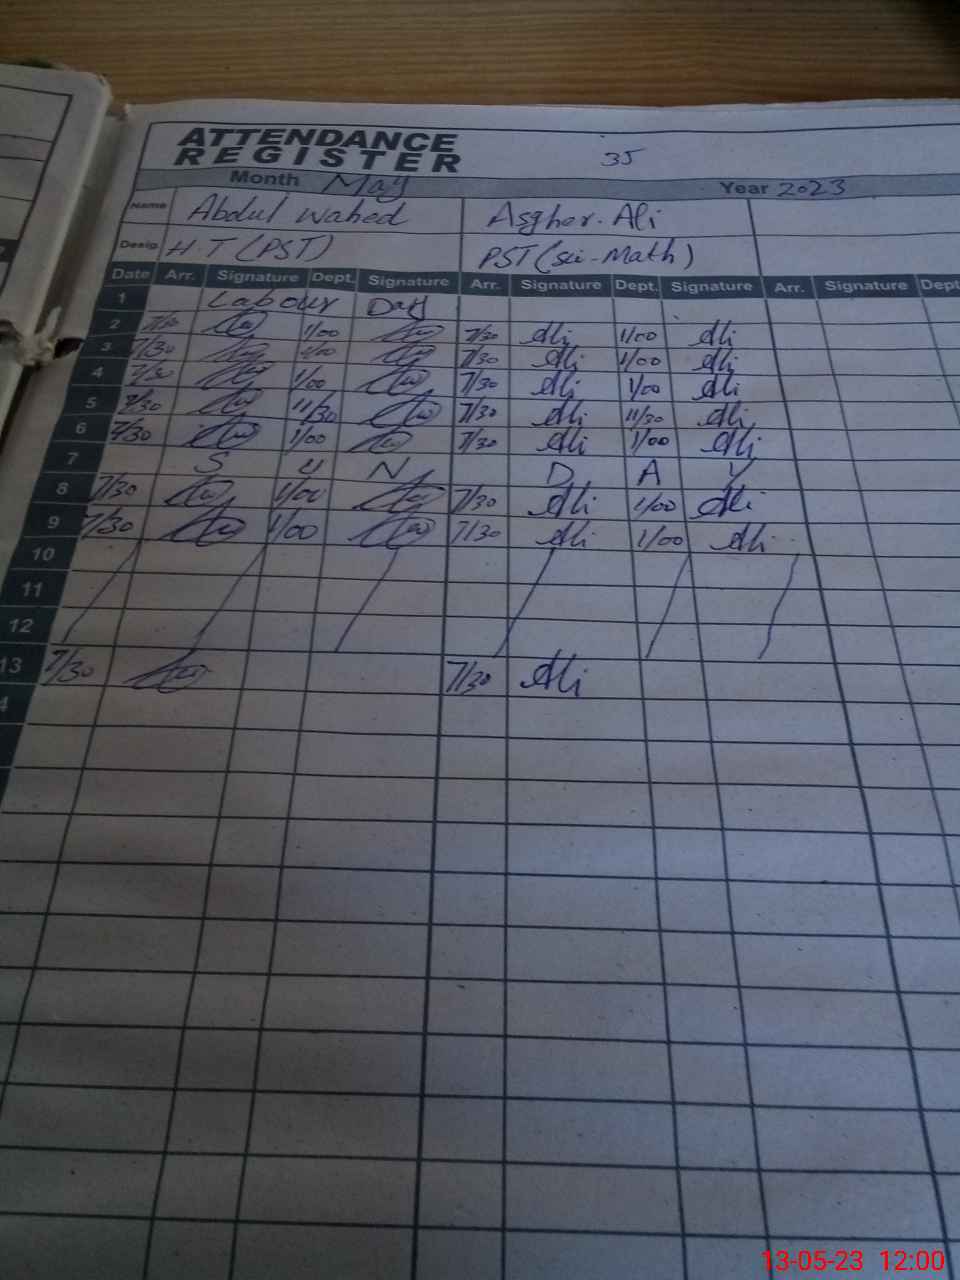 ATTENDANCE
REGISTER
35
Month May Year 2023
Name Abdul Wahed Asgher. Ali
Desig H.T (PST) PST (sci-Math)
Date Arr. Signature Dept. Signature Arr. Signature Dept. Signature Arr. Signature Dept
1 Labour Day
2 7/30 1/00 7/30 Ali 1/00 Ali
3 7/30 1/00 7/30 Ali 1/00 Ali
4 7/30 1/00 7/30 Ali 1/00 Ali
5 7/30 11/30 7/30 Ali 11/30 Ali
6 7/30 1/00 7/30 Ali 1/00 Ali
7 S U N D A Y
8 7/30 1/00 7/30 Ali 1/00 Ali
9 7/30 1/00 7/30 Ali 1/00 Ali
10
11
12
13 7/30 7/30 Ali
4
13-05-23 12:00